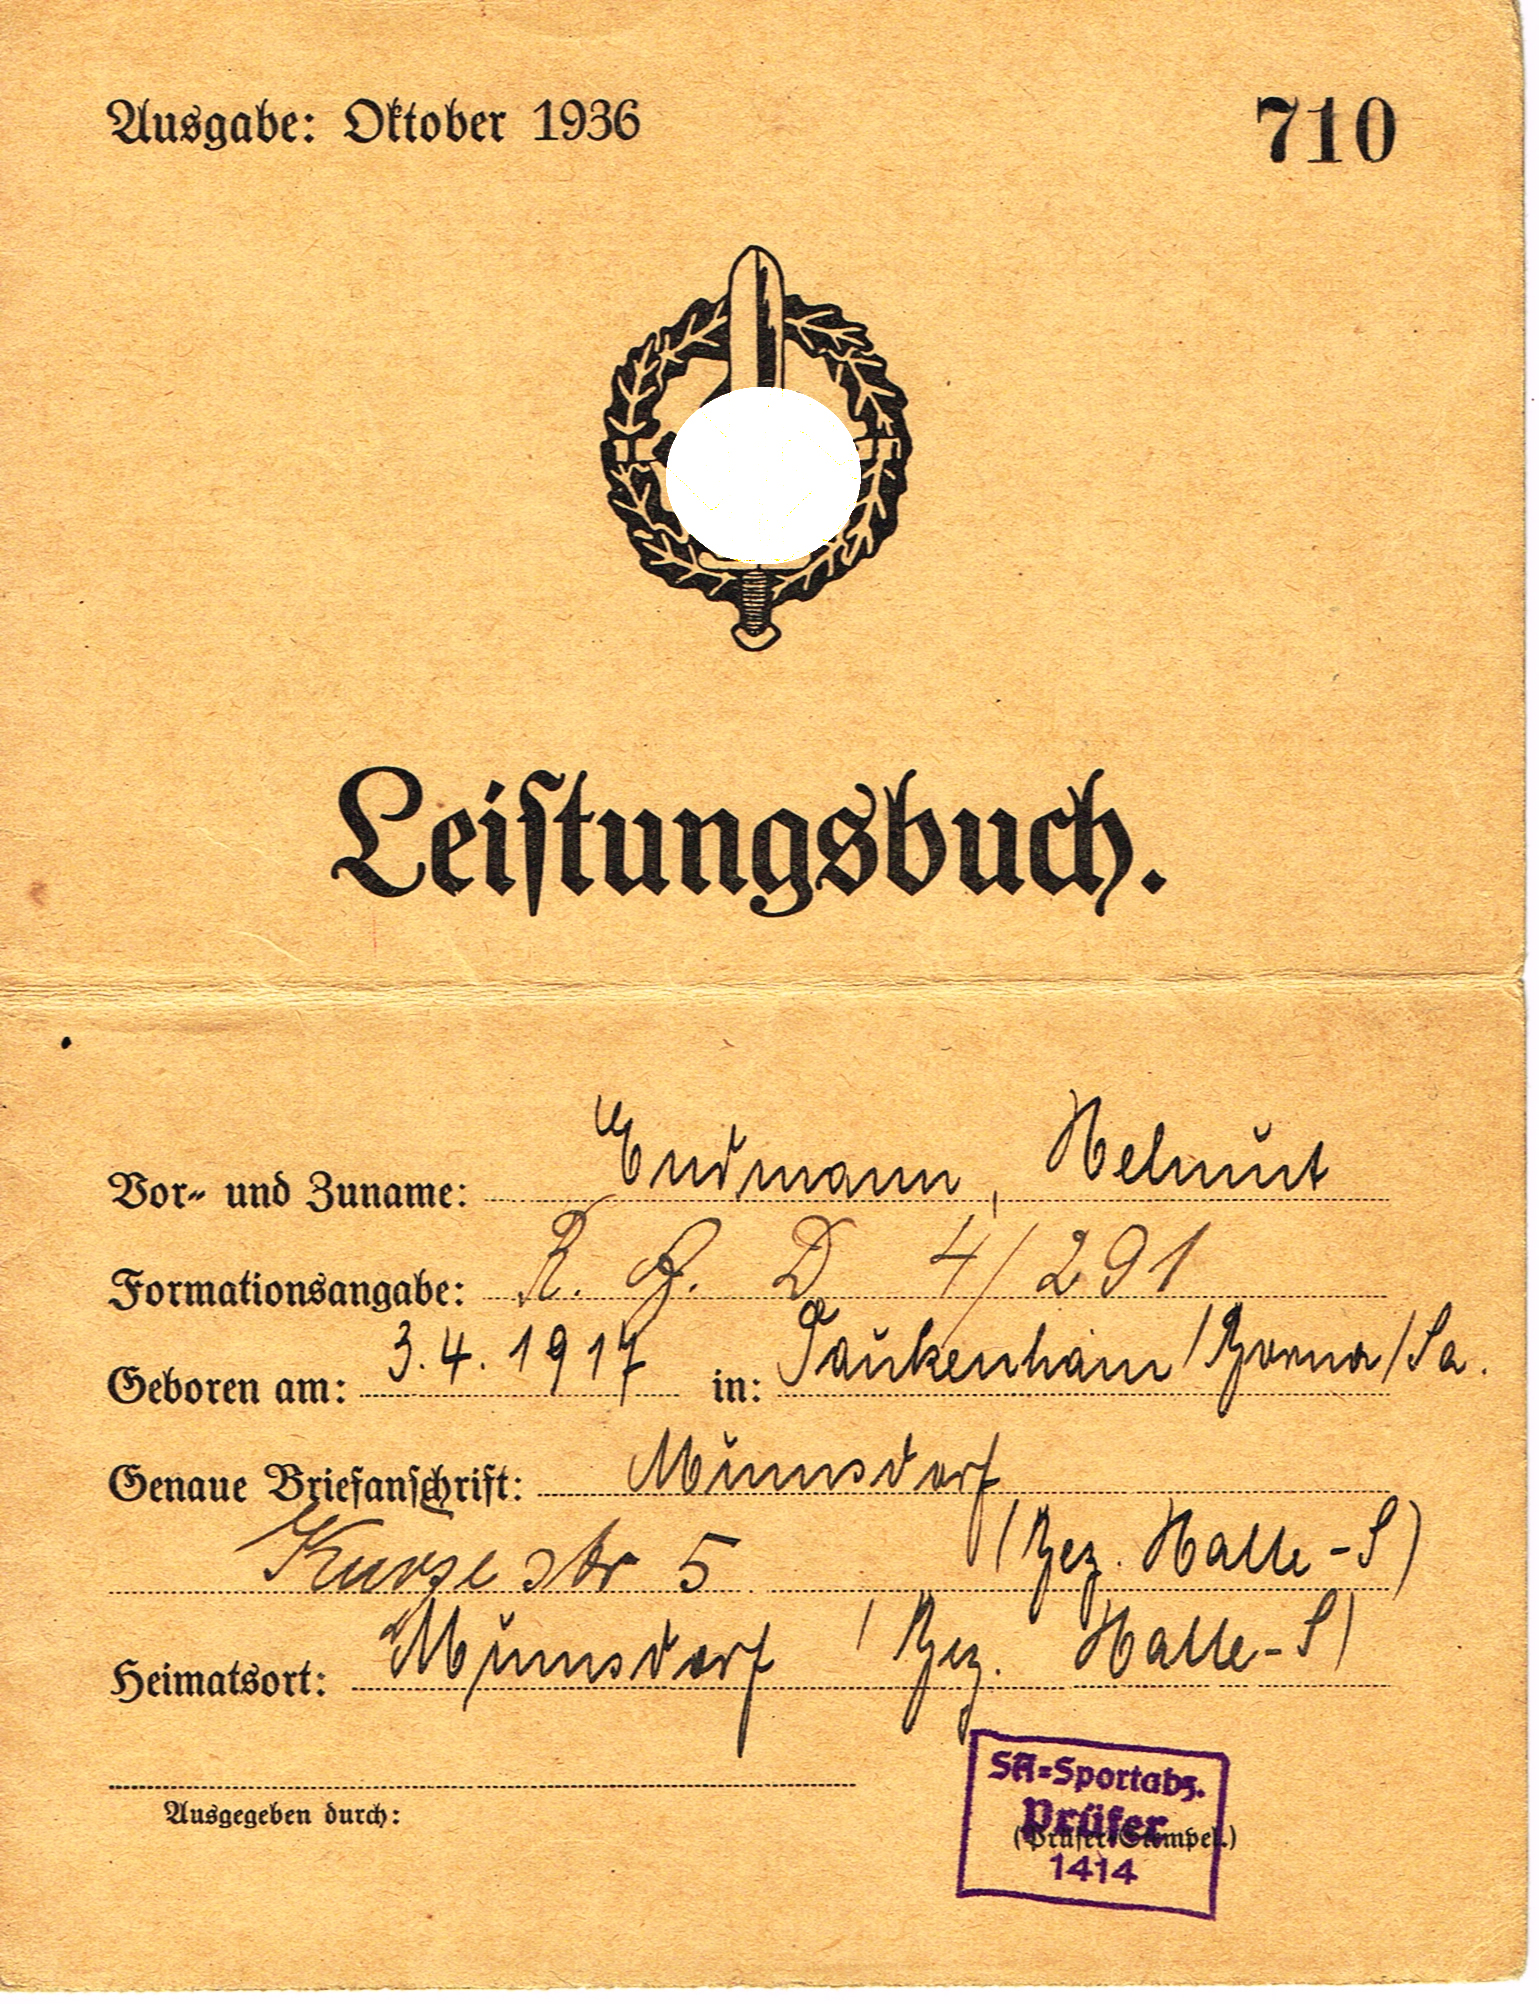 Ausgabe: Oktober 1936
710
Leistungsbuch.
Vor- und Zuname: Erdmann, Helmut
Formationsangabe: R. A. D 4/291
Geboren am: 3.4.1917 in: Tautenhain /Borna/Sa.
Genaue Briefanschrift: Mumsdorf
Kurze str 5 (Bez. Halle-S)
Heimatsort: Mumsdorf (Bez. Halle-S)
SA=Sportabz.
Prüfer
1414
Ausgegeben durch:
(Prüfer-Stempel.)